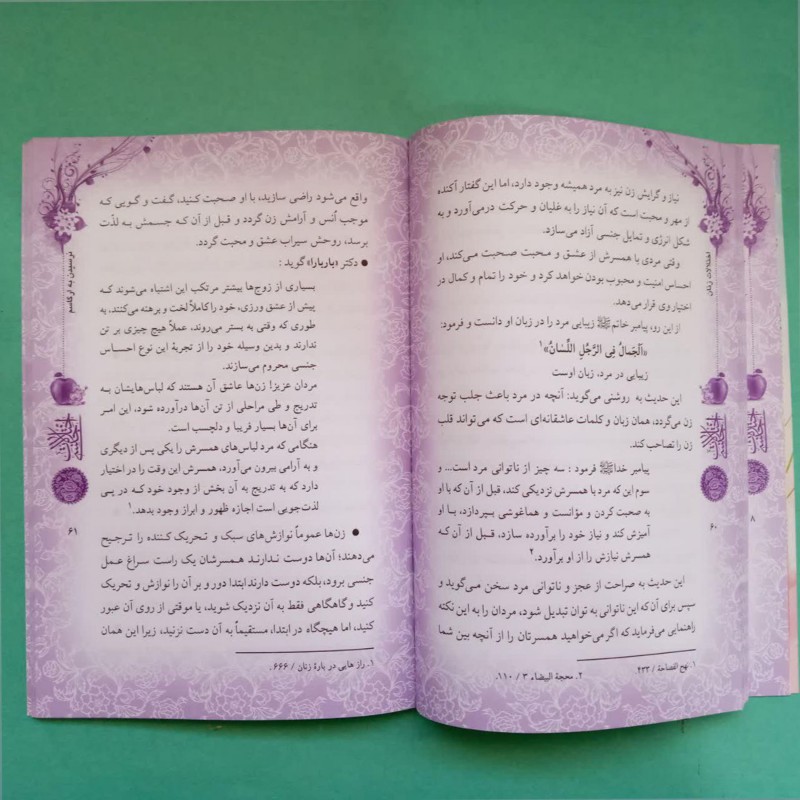 نیاز و گرایش زن نیز به مرد همیشه وجود دارد، اما این گفتار آکنده
از مهر و محبت است که آن نیاز را به غلیان و حرکت درمی‌آورد و به
شکل انرژی و تمایل جنسی آزاد می‌سازد.
وقتی مردی با همسرش از عشق و محبت صحبت می‌کند، او
احساس امنیت و محبوب بودن خواهد کرد و خود را تمام و کمال در
اختیار وی قرار می‌دهد.
از این رو، پیامبر خاتم ﷺ زیبایی مرد را در زبان او دانست و فرمود:
«اَلْجَمالُ فِی الرَّجُلِ اللِّسَانُ»۱
زیبایی در مرد، زبان اوست
این حدیث به روشنی می‌گوید: آنچه در مرد باعث جلب توجه
زن می‌گردد، همان زبان و کلمات عاشقانه‌ای است که می‌تواند قلب
زن را تصاحب کند.
پیامبر خدا ﷺ فرمود : سه چیز از ناتوانی مرد است... و
سوم این که مرد با همسرش نزدیکی کند، قبل از آن که با او
به صحبت کردن و مؤانست و هماغوشی بپردازد، با او
آمیزش کند و نیاز خود را برآورده سازد، قبل از آن که
همسرش نیازش را از او برآورد.۲
این حدیث به صراحت از عجز و ناتوانی مرد سخن می‌گوید و
سپس برای آن که این ناتوانی به توان تبدیل شود، مردان را به این نکته
راهنمایی می‌فرماید که اگر می‌خواهید همسرتان را از آنچه بین شما
۱. نهج الفصاحة / ۴۳۳
۲. محجة البیضاء ۳ / ۱۱۰.
اختلالات زنان
اختلالات جنسی
۶۰
۸
واقع می‌شود راضی سازید، با او صحبت کنید، گفت و گویی که
موجب اُنس و آرامش زن گردد و قبل از آن که جسمش به لذّت
برسد، روحش سیراب عشق و محبت گردد.
● دکتر «باربارا» گوید :
بسیاری از زوج‌ها بیشتر مرتکب این اشتباه می‌شوند که
پیش از عشق ورزی، خود را کاملاً لخت و برهنه می‌کنند، به
طوری که وقتی به بستر می‌روند، عملاً هیچ چیزی بر تن
ندارند و بدین وسیله خود را از تجربهٔ این نوع احساس
جنسی محروم می‌سازند.
مردان عزیز! زن‌ها عاشق آن هستند که لباس‌هایشان به
تدریج و طی مراحلی از تن آن‌ها درآورده شود، این امر
برای آن‌ها بسیار فریبا و دلچسب است.
هنگامی که مرد لباس‌های همسرش را یکی پس از دیگری
و به آرامی بیرون می‌آورد، همسرش این وقت را در اختیار
دارد که به تدریج به آن بخش از وجود خود که در پی
لذت‌جویی است اجازه ظهور و ابراز وجود بدهد.۱
● زن‌ها عموماً نوازش‌های سبک و تحریک کننده را ترجیح
می‌دهند؛ آن‌ها دوست ندارند همسرشان یک راست سراغ عمل
جنسی برود، بلکه دوست دارند ابتدا دور و بر آن را نوازش و تحریک
کنید و گاهگاهی فقط به آن نزدیک شوید، یا موقتی از روی آن عبور
کنید، اما هیچگاه در ابتدا، مستقیماً به آن دست نزنید، زیرا این همان
۱. راز هایی در بارهٔ زنان / ۶۶۶.
نرسیدن به ارگاسم
اختلالات جنسی
۶۱